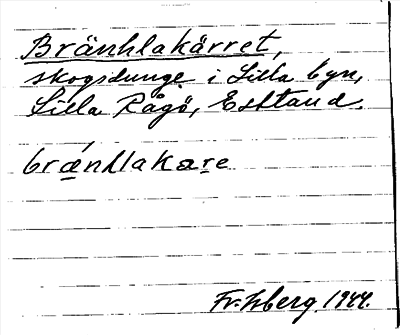 Bränhlakärret,
skogsdunge i Lilla byn,
Lilla Rågö, Estland.
brǽnhlakære
Fr. Isberg 1944.